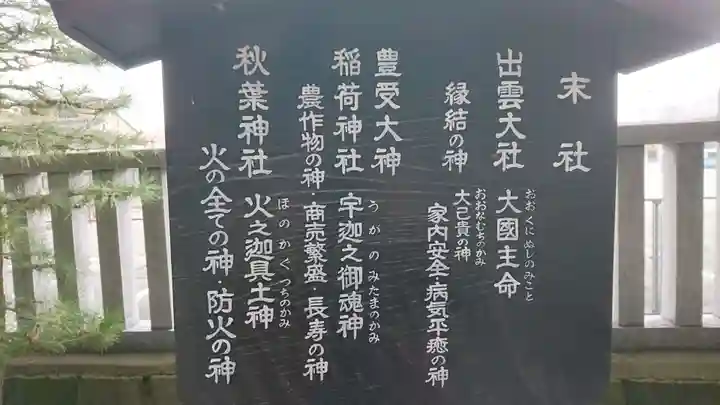 末社
出雲大社 大國主命
おおくにぬしのみこと
大己貴の神
おおなむちのかみ
縁結の神 家内安全・病気平癒の神
豊受大神
稲荷神社 宇迦之御魂神
うがのみたまのかみ
農作物の神・商売繁盛・長寿の神
秋葉神社 火之迦具土神
ほのかぐつちのかみ
火の全ての神・防火の神